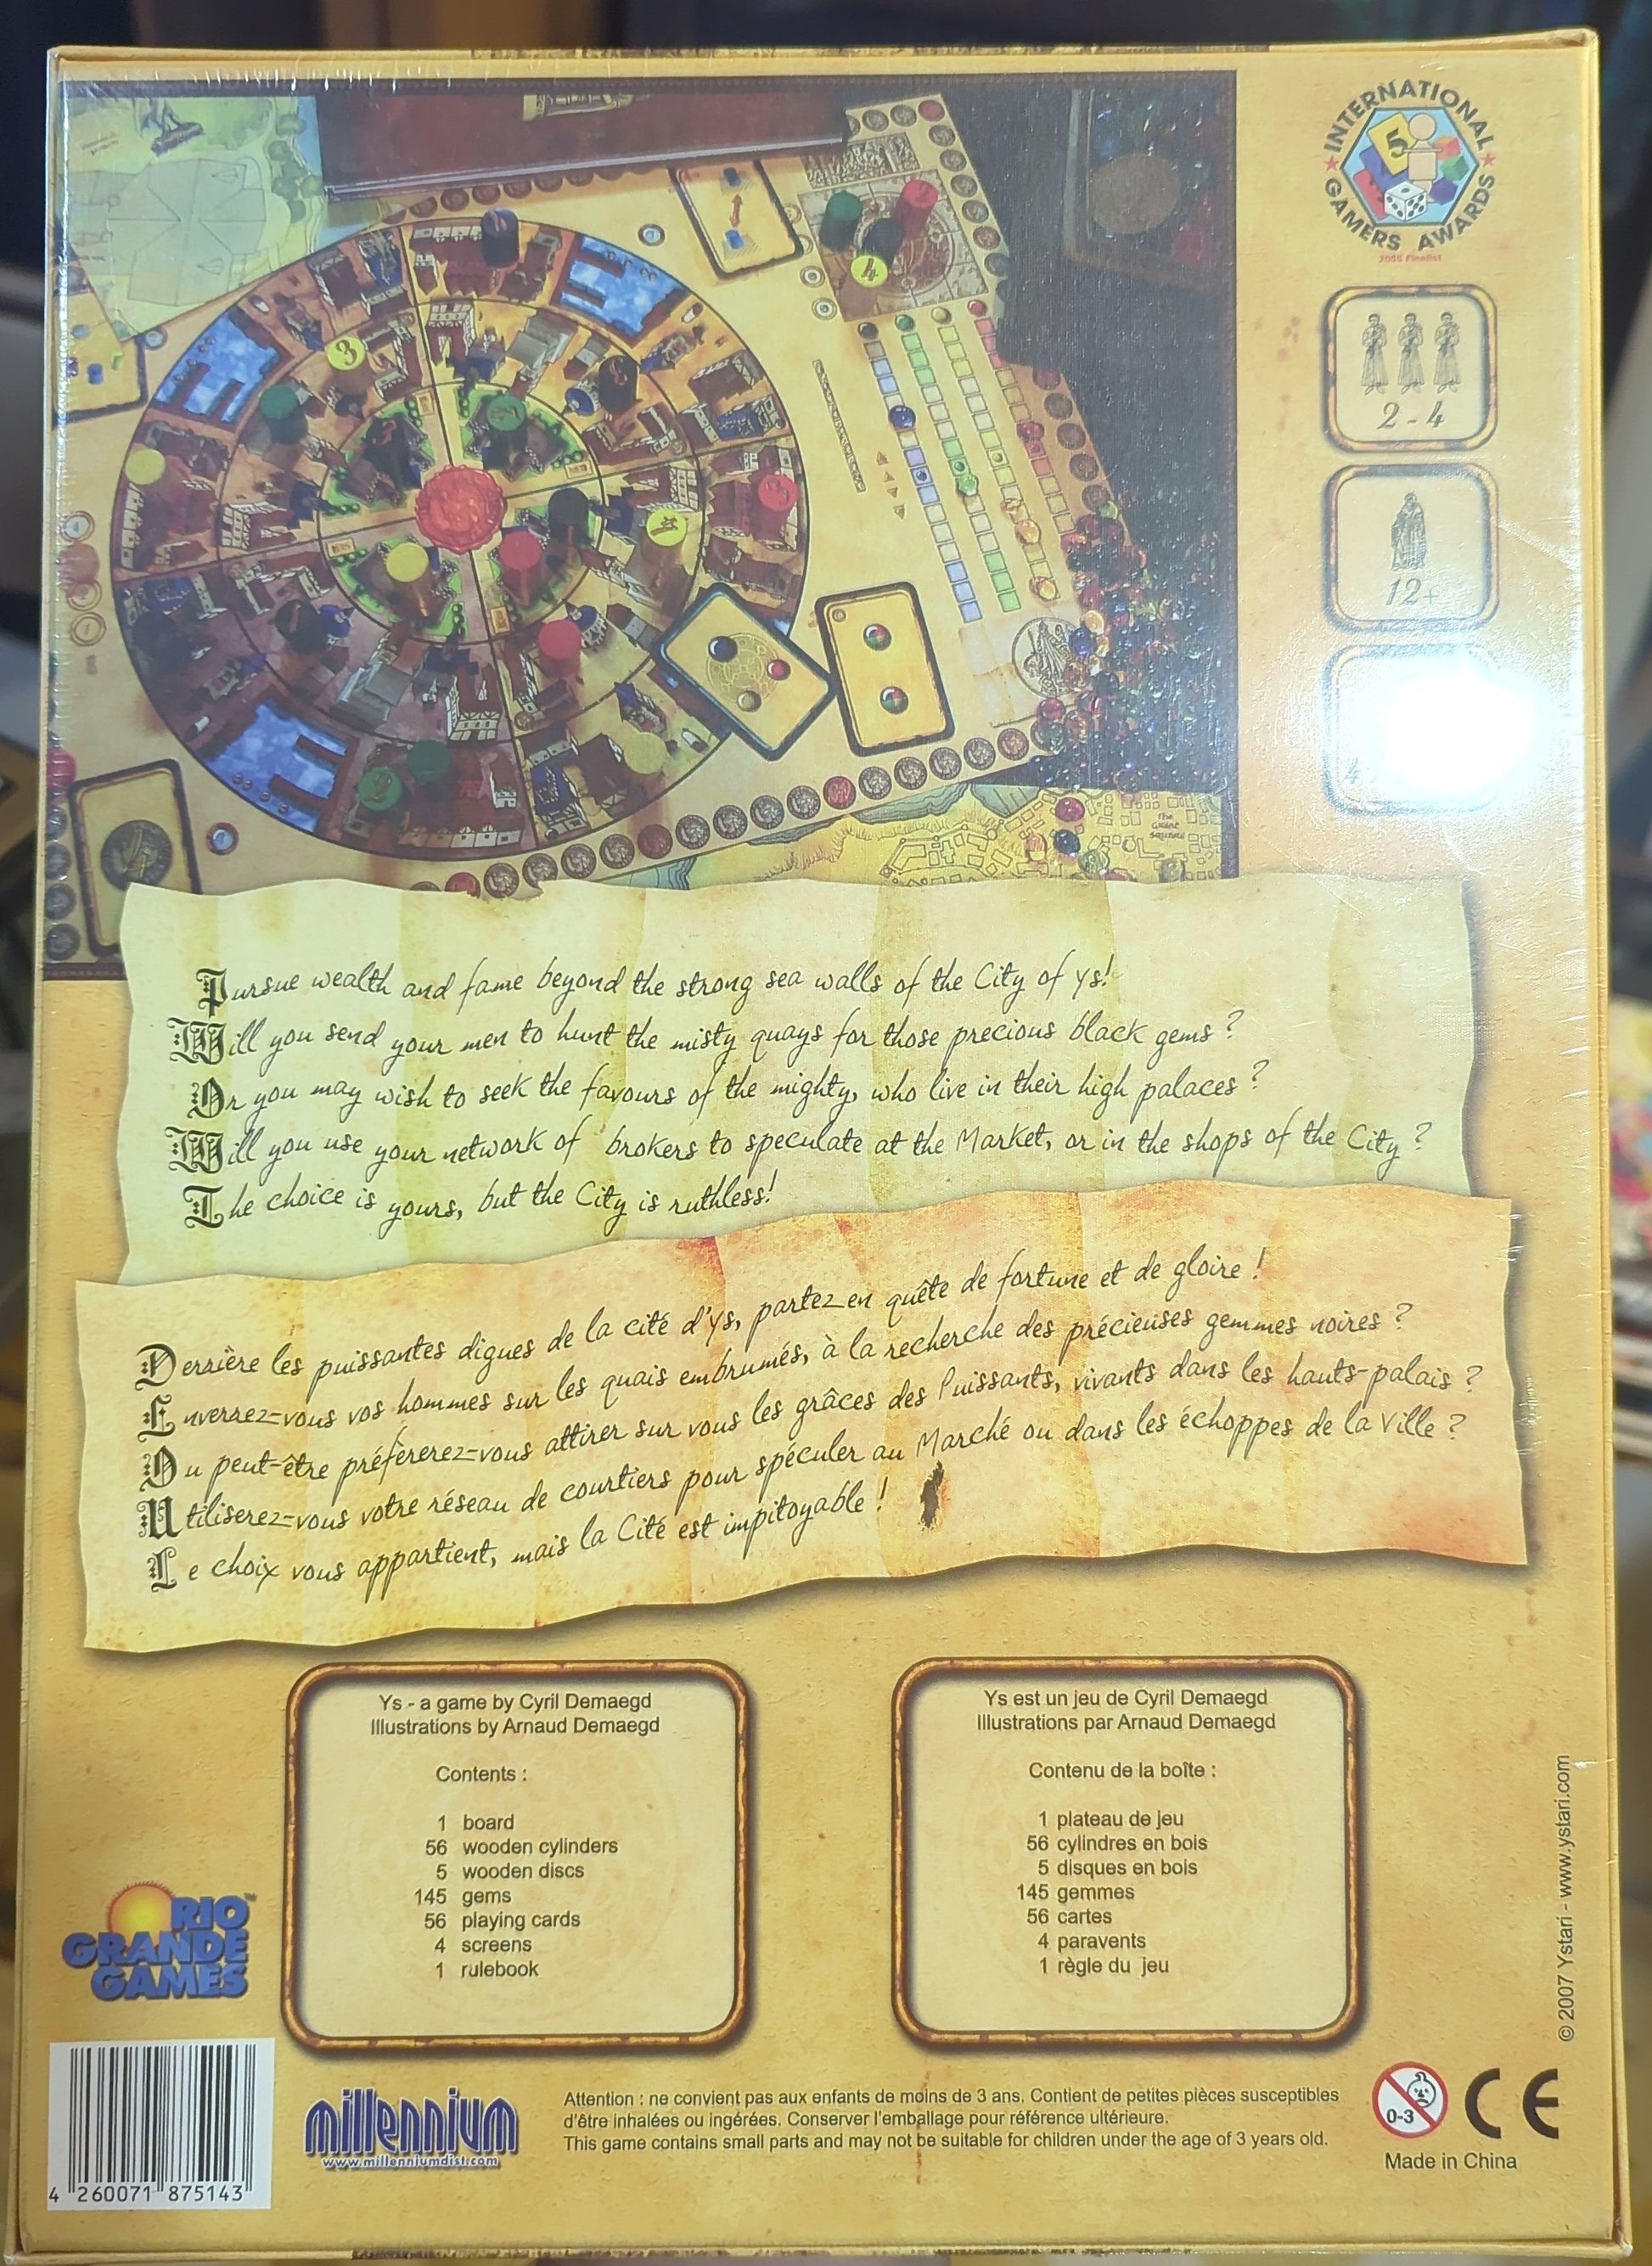 INTERNATIONAL
GAMERS AWARDS
5
2005 Finalist
2 - 4
12+
3
4
The
Great
Square
Pursue wealth and fame beyond the strong sea walls of the City of Ys!
Will you send your men to hunt the misty quays for those precious black gems ?
Or you may wish to seek the favours of the mighty, who live in their high palaces ?
Will you use your network of brokers to speculate at the Market, or in the shops of the City ?
The choice is yours, but the City is ruthless!
Derrière les puissantes digues de la cité d'Ys, partez en quête de fortune et de gloire !
Enverrez-vous vos hommes sur les quais embrumés, à la recherche des précieuses gemmes noires ?
Ou peut-être préfèrerez-vous attirer sur vous les grâces des Puissants, vivants dans les hauts-palais ?
Utiliserez-vous votre réseau de courtiers pour spéculer au Marché ou dans les échoppes de la Ville ?
Le choix vous appartient, mais la Cité est impitoyable !
Ys - a game by Cyril Demaegd
Illustrations by Arnaud Demaegd
Contents :
1 board
56 wooden cylinders
5 wooden discs
145 gems
56 playing cards
4 screens
1 rulebook
Ys est un jeu de Cyril Demaegd
Illustrations par Arnaud Demaegd
Contenu de la boîte :
1 plateau de jeu
56 cylindres en bois
5 disques en bois
145 gemmes
56 cartes
4 paravents
1 règle du jeu
© 2007 Ystari - www.ystari.com
RIO
GRANDE
GAMES
™
4 260071 875143
millennium
www.millenniumdist.com
Attention : ne convient pas aux enfants de moins de 3 ans. Contient de petites pièces susceptibles
d'être inhalées ou ingérées. Conserver l'emballage pour référence ultérieure.
This game contains small parts and may not be suitable for children under the age of 3 years old.
0-3
CE
Made in China